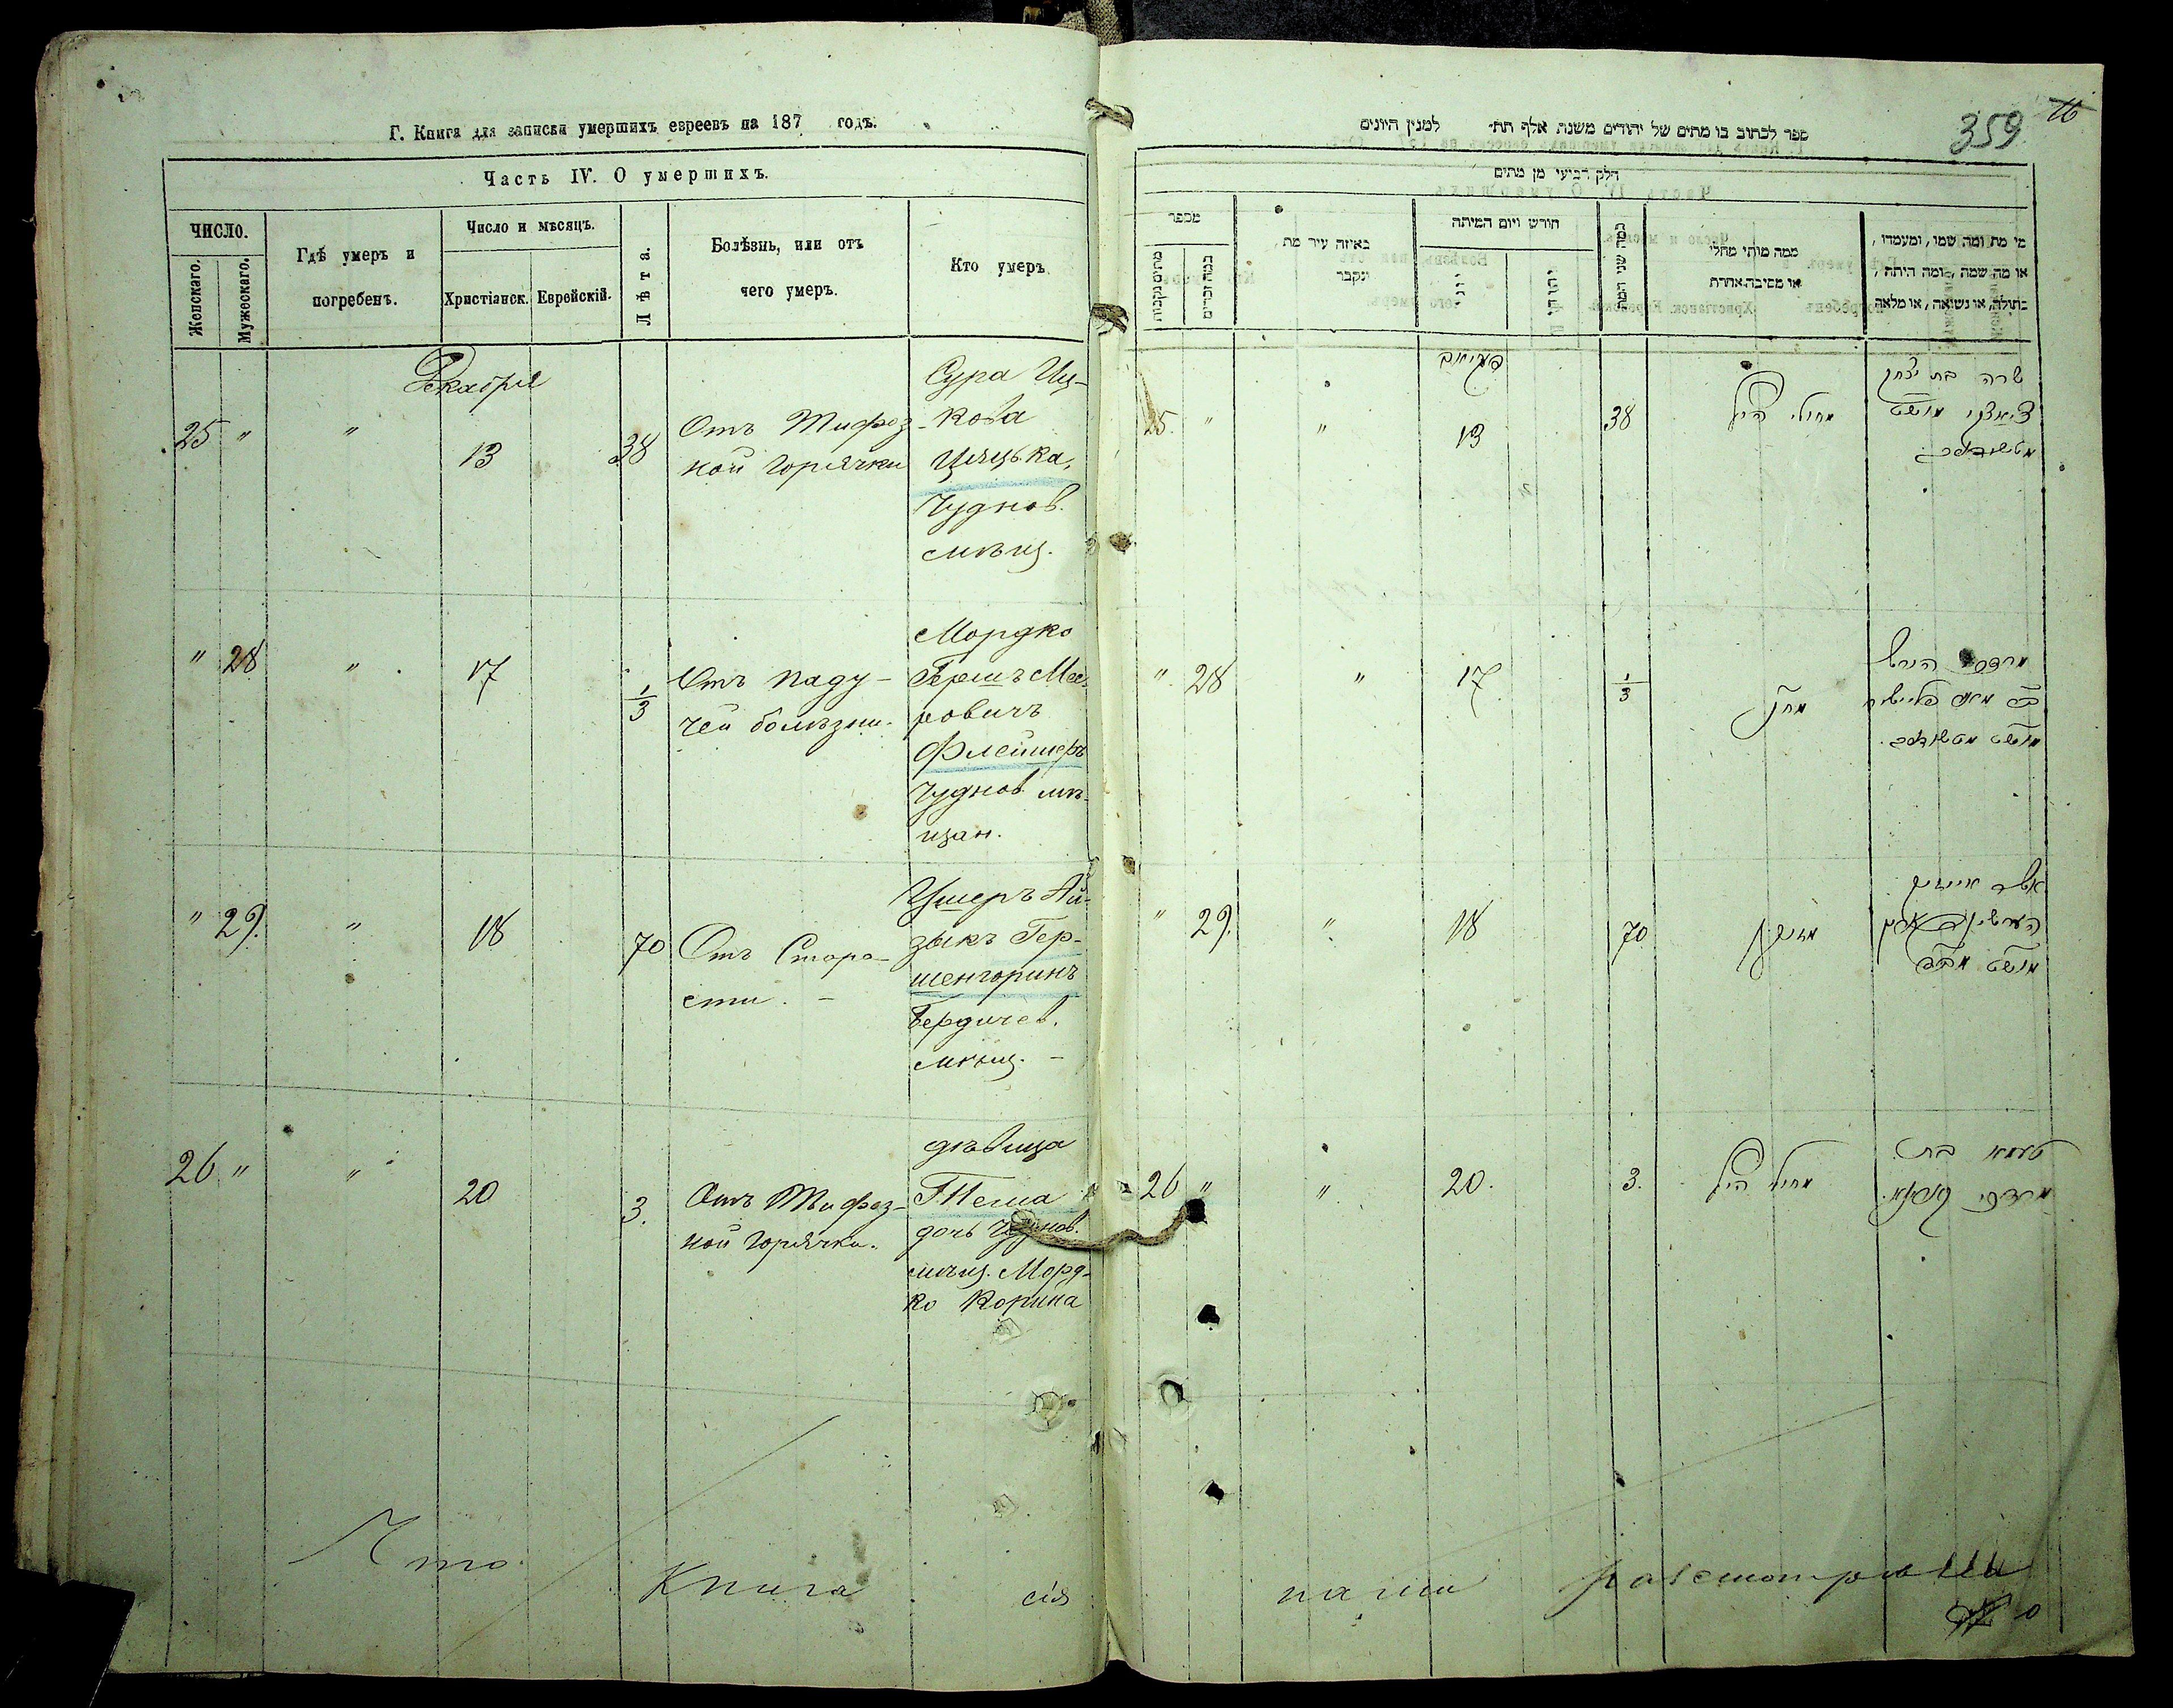 Г. Книга для записки умершихъ евреевъ на 187 годъ.
Часть IV. О умершихъ.
ЧИСЛО.
Женскаго.
Мужескаго.
Гдѣ умеръ и
погребенъ.
Число и мѣсяцъ.
Христіанск.
Еврейскій.
Лѣта.
Болѣзнь, или отъ
чего умеръ.
Кто умеръ
Декабря
25 " " 13 38
Отъ Тифоз-
ной горячки
Сура Иц-
кова
Цяцька,
Чуднов.
мѣщ.
" 28 " 17 1/3
Отъ паду-
чей болѣзни.
Мордко
Гершъ Мее-
ровичъ
Флейшеръ
Чуднов мѣ-
щан.
" 29. " 18 70
Отъ Старо-
сти. -
Ушеръ Ай-
зыкъ Гер-
шенгоринъ
Бердичев.
мѣщ. -
26 " " 20 3.
Отъ Тифоз-
ной горячки.
дѣвица
Тема
дочь Чуднов.
мѣщ. Морд-
ко Корина
Что Книга сія
359
16
ספר לכתוב בו מתים של יהודים משנת אלף תת- למנין היונים
חלק רביעי מן מתים
מספר
כמה זכרים
באיזה עיר מת
ונקבר
חודש ויום המיתה
יוני
יהודי
כמה שני המת
ממה מותו מחלי
או מסיבה אחרת
מי מת ומה שמו, ומעמדו,
או מה שמה, ומה היתה,
בתולה, או נשואה, או מלאה
25. " " 13 38
מחולי
שרה בת יצחק
". 28 " 17 1/3
מרדכי הירש
" 29. " 18 70
מזוקן
אשר אייזיק
26 " " 20. 3.
מחולי
טעמא בת
מרדכי
нами разсмотрѣна